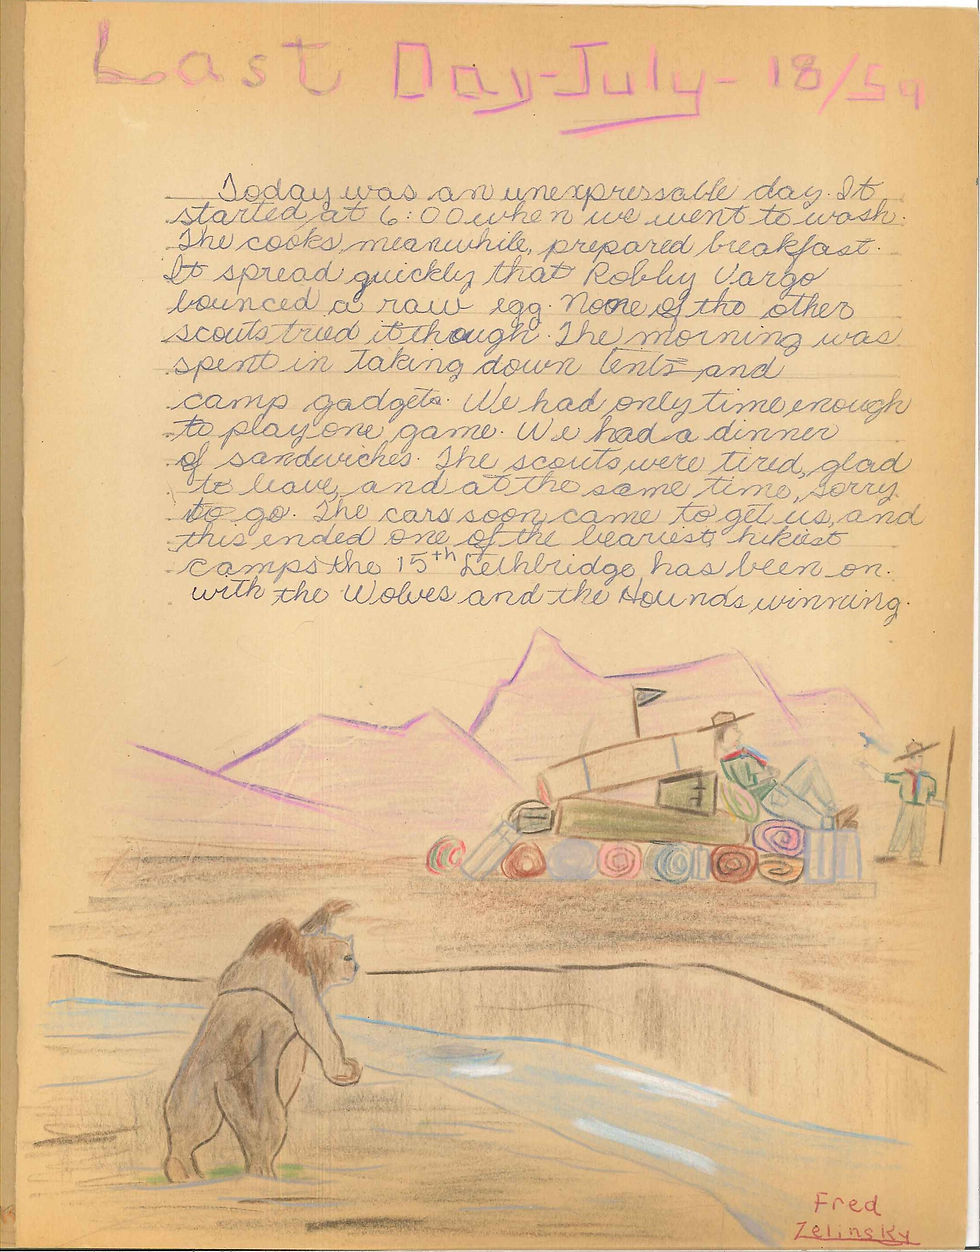 Last Day-July-18/59
Today was an unexpressable day. It
started at 6:00 when we went to wash.
The cooks meanwhile, prepared breakfast.
It spread quickly that Robby Vargo
bounced a raw egg. None of the other
scouts tried it though. The morning was
spent in taking down tents and
camp gadgets. We had only time enough
to play one game. We had a dinner
of sandwiches. The scouts were tired, glad
to leave, and at the same time, sorry
to go. The cars soon came to get us, and
this ended one of the beariest, hikiest
camps the 15th Lethbridge has been on.
with the Wolves and the Hounds winning.
Fred
Zelinsky